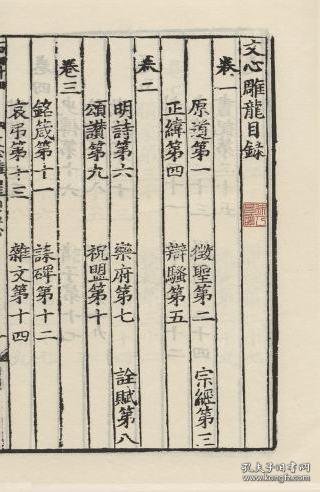 文心雕龍目錄
卷一
原道第一 徵聖第二 宗經第三
正緯第四 辯騷第五
卷二
明詩第六 樂府第七 詮賦第八
頌讚第九 祝盟第十
卷三
銘箴第十一 誄碑第十二
哀弔第十三 雜文第十四
孔夫子旧书网